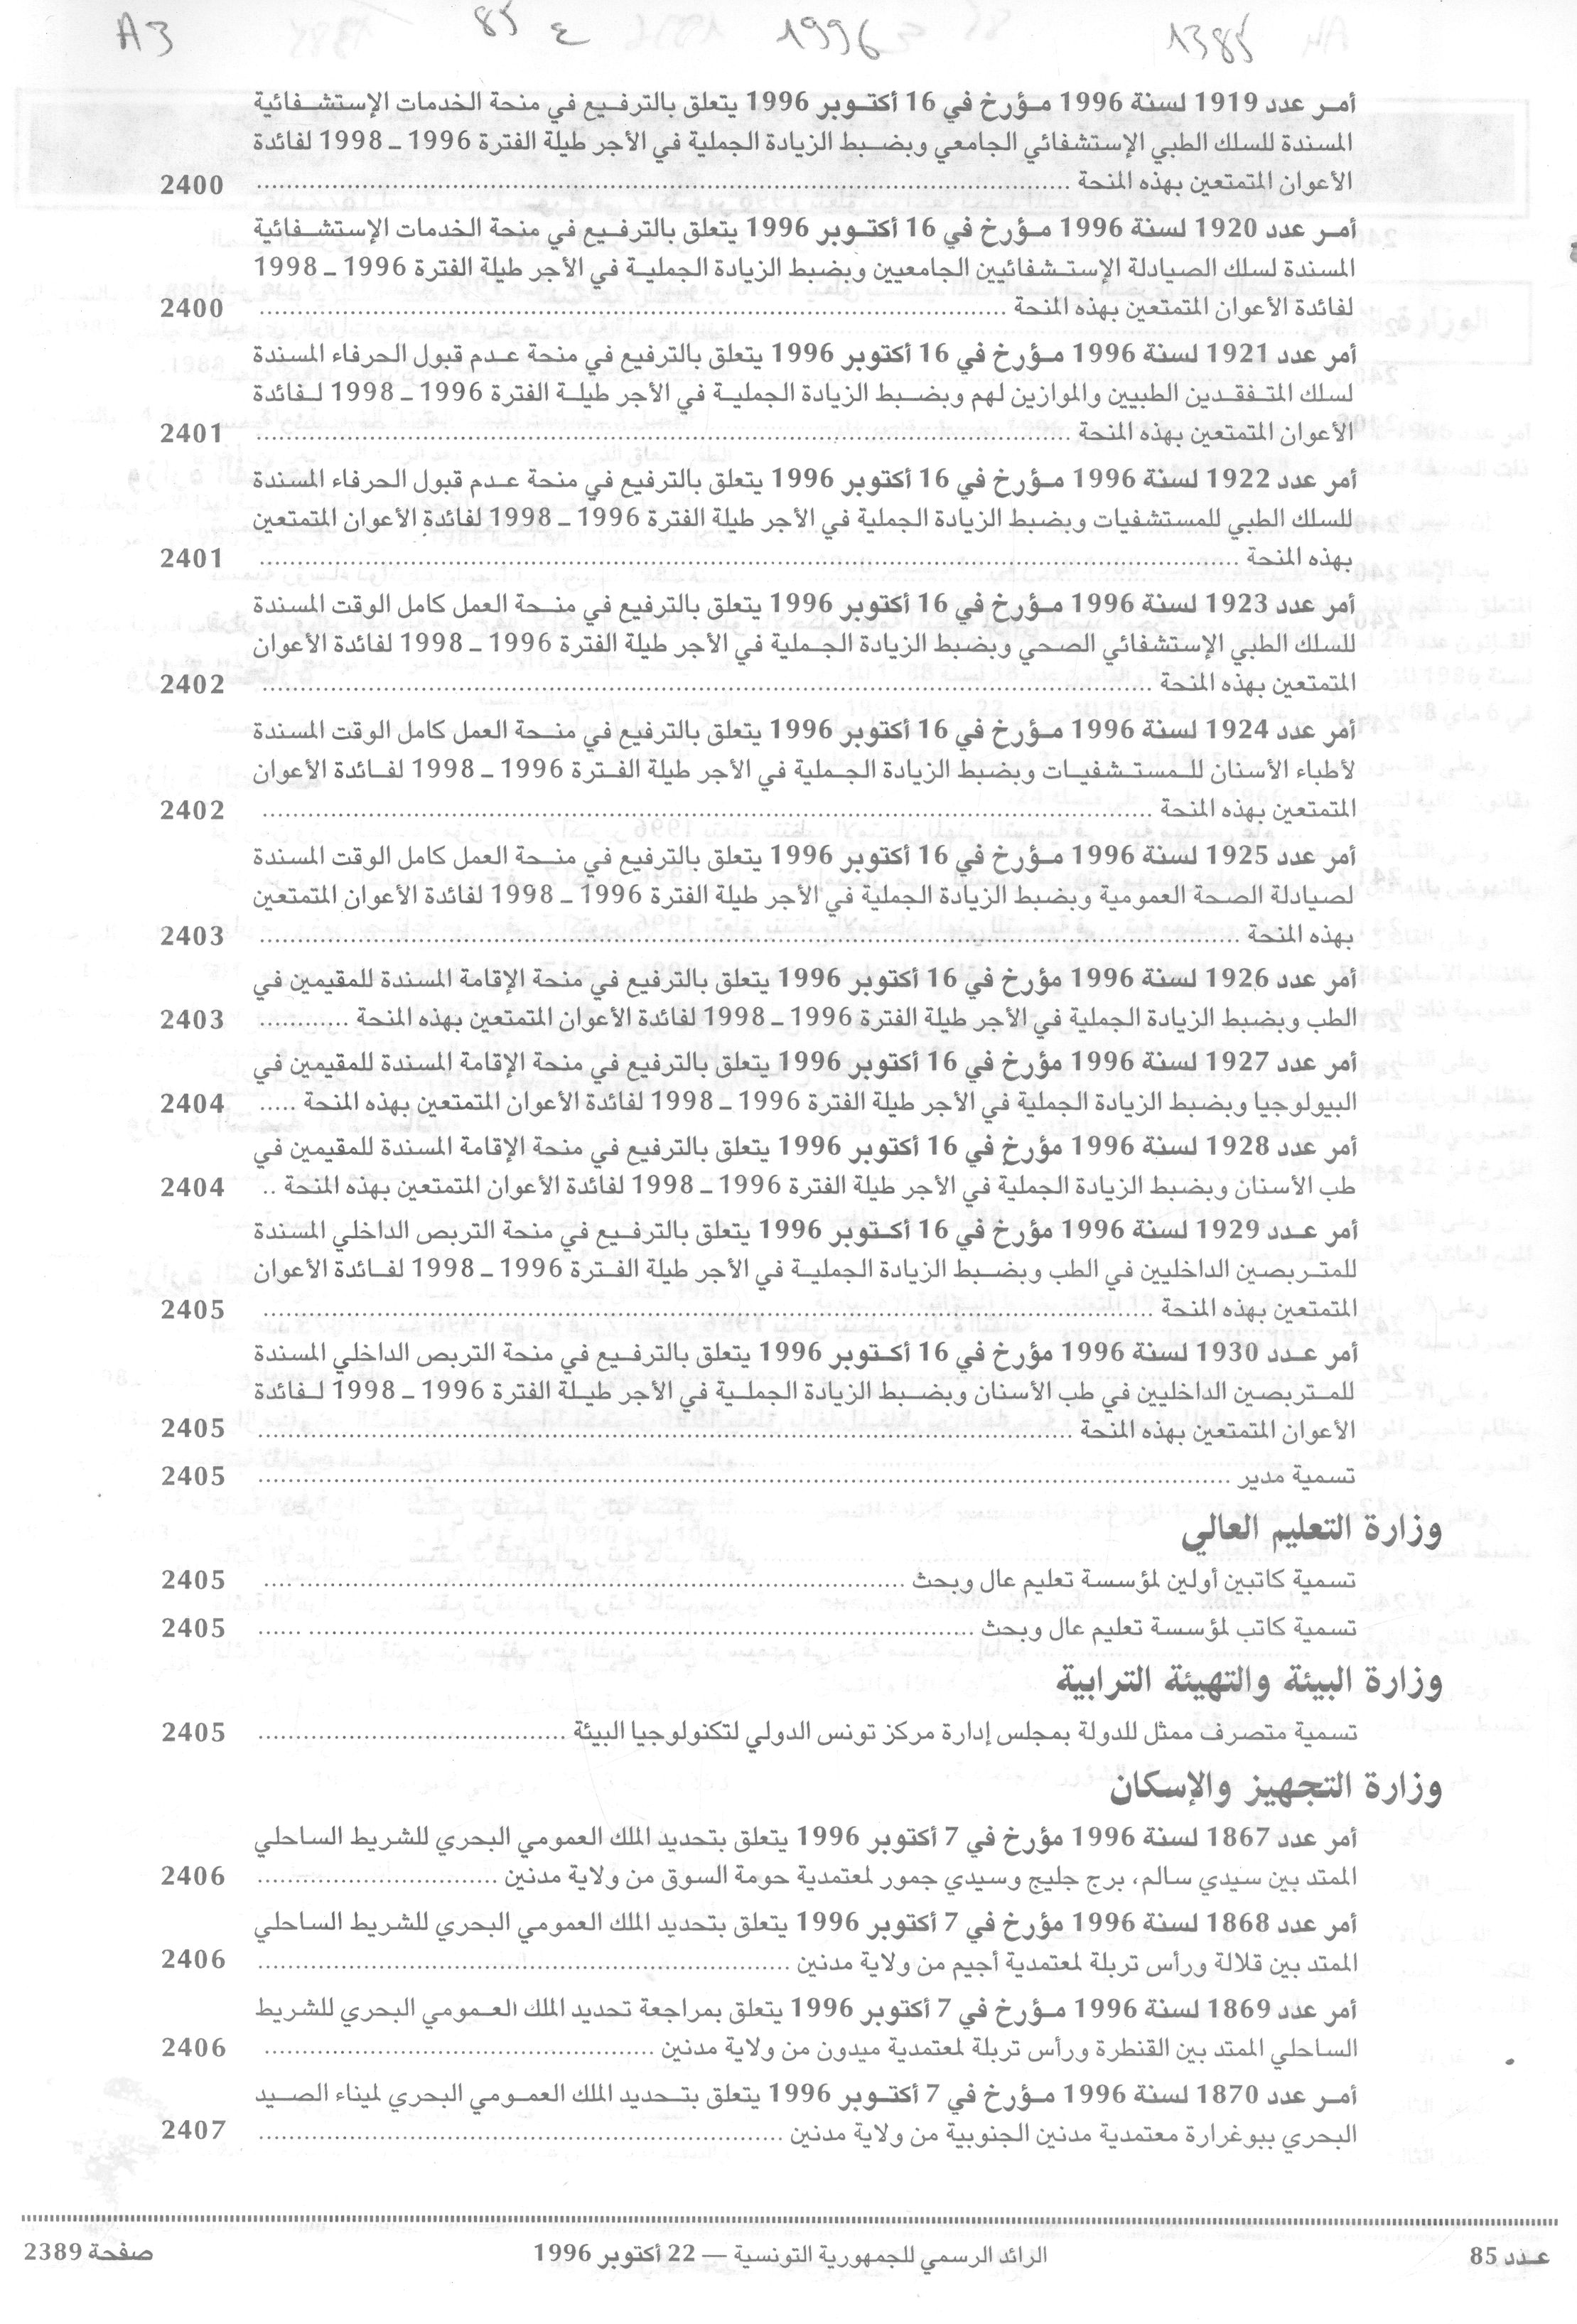 A3 85 ع 1996 1385
أمر عدد 1919 لسنة 1996 مؤرخ في 16 أكتوبر 1996 يتعلق بالترفيع في منحة الخدمات الإستشفائية
المسندة للسلك الطبي الإستشفائي الجامعي وبضبط الزيادة الجملية في الأجر طيلة الفترة 1996 ـ 1998 لفائدة
الأعوان المتمتعين بهذه المنحة ........................................ 2400
أمر عدد 1920 لسنة 1996 مؤرخ في 16 أكتوبر 1996 يتعلق بالترفيع في منحة الخدمات الإستشفائية
المسندة لسلك الصيادلة الإستشفائيين الجامعيين وبضبط الزيادة الجملية في الأجر طيلة الفترة 1996 ـ 1998
لفائدة الأعوان المتمتعين بهذه المنحة ........................................ 2400
أمر عدد 1921 لسنة 1996 مؤرخ في 16 أكتوبر 1996 يتعلق بالترفيع في منحة عدم قبول الحرفاء المسندة
لسلك المتفقدين الطبيين والموازين لهم وبضبط الزيادة الجملية في الأجر طيلة الفترة 1996 ـ 1998 لفائدة
الأعوان المتمتعين بهذه المنحة ........................................ 2401
أمر عدد 1922 لسنة 1996 مؤرخ في 16 أكتوبر 1996 يتعلق بالترفيع في منحة عدم قبول الحرفاء المسندة
للسلك الطبي للمستشفيات وبضبط الزيادة الجملية في الأجر طيلة الفترة 1996 ـ 1998 لفائدة الأعوان المتمتعين
بهذه المنحة ........................................ 2401
أمر عدد 1923 لسنة 1996 مؤرخ في 16 أكتوبر 1996 يتعلق بالترفيع في منحة العمل كامل الوقت المسندة
للسلك الطبي الإستشفائي الصحي وبضبط الزيادة الجملية في الأجر طيلة الفترة 1996 ـ 1998 لفائدة الأعوان
المتمتعين بهذه المنحة ........................................ 2402
أمر عدد 1924 لسنة 1996 مؤرخ في 16 أكتوبر 1996 يتعلق بالترفيع في منحة العمل كامل الوقت المسندة
لأطباء الأسنان للمستشفيات وبضبط الزيادة الجملية في الأجر طيلة الفترة 1996 ـ 1998 لفائدة الأعوان
المتمتعين بهذه المنحة ........................................ 2402
أمر عدد 1925 لسنة 1996 مؤرخ في 16 أكتوبر 1996 يتعلق بالترفيع في منحة العمل كامل الوقت المسندة
لصيادلة الصحة العمومية وبضبط الزيادة الجملية في الأجر طيلة الفترة 1996 ـ 1998 لفائدة الأعوان المتمتعين
بهذه المنحة ........................................ 2403
أمر عدد 1926 لسنة 1996 مؤرخ في 16 أكتوبر 1996 يتعلق بالترفيع في منحة الإقامة المسندة للمقيمين في
الطب وبضبط الزيادة الجملية في الأجر طيلة الفترة 1996 ـ 1998 لفائدة الأعوان المتمتعين بهذه المنحة ............ 2403
أمر عدد 1927 لسنة 1996 مؤرخ في 16 أكتوبر 1996 يتعلق بالترفيع في منحة الإقامة المسندة للمقيمين في
البيولوجيا وبضبط الزيادة الجملية في الأجر طيلة الفترة 1996 ـ 1998 لفائدة الأعوان المتمتعين بهذه المنحة ..... 2404
أمر عدد 1928 لسنة 1996 مؤرخ في 16 أكتوبر 1996 يتعلق بالترفيع في منحة الإقامة المسندة للمقيمين في
طب الأسنان وبضبط الزيادة الجملية في الأجر طيلة الفترة 1996 ـ 1998 لفائدة الأعوان المتمتعين بهذه المنحة .. 2404
أمر عدد 1929 لسنة 1996 مؤرخ في 16 أكتوبر 1996 يتعلق بالترفيع في منحة التربص الداخلي المسندة
للمتربصين الداخليين في الطب وبضبط الزيادة الجملية في الأجر طيلة الفترة 1996 ـ 1998 لفائدة الأعوان
المتمتعين بهذه المنحة ........................................ 2405
أمر عدد 1930 لسنة 1996 مؤرخ في 16 أكتوبر 1996 يتعلق بالترفيع في منحة التربص الداخلي المسندة
للمتربصين الداخليين في طب الأسنان وبضبط الزيادة الجملية في الأجر طيلة الفترة 1996 ـ 1998 لفائدة
الأعوان المتمتعين بهذه المنحة ........................................ 2405
تسمية مدير ........................................ 2405
وزارة التعليم العالي
تسمية كاتبين أولين لمؤسسة تعليم عال وبحث ........................................ 2405
تسمية كاتب لمؤسسة تعليم عال وبحث ........................................ 2405
وزارة البيئة والتهيئة الترابية
تسمية متصرف ممثل للدولة بمجلس إدارة مركز تونس الدولي لتكنولوجيا البيئة ........................................ 2405
وزارة التجهيز والإسكان
أمر عدد 1867 لسنة 1996 مؤرخ في 7 أكتوبر 1996 يتعلق بتحديد الملك العمومي البحري للشريط الساحلي
الممتد بين سيدي سالم، برج جليج وسيدي جمور لمعتمدية حومة السوق من ولاية مدنين ................................ 2406
أمر عدد 1868 لسنة 1996 مؤرخ في 7 أكتوبر 1996 يتعلق بتحديد الملك العمومي البحري للشريط الساحلي
الممتد بين قلالة ورأس تربلة لمعتمدية أجيم من ولاية مدنين ........................................ 2406
أمر عدد 1869 لسنة 1996 مؤرخ في 7 أكتوبر 1996 يتعلق بمراجعة تحديد الملك العمومي البحري للشريط
الساحلي الممتد بين القنطرة ورأس تربلة لمعتمدية ميدون من ولاية مدنين ........................................ 2406
أمر عدد 1870 لسنة 1996 مؤرخ في 7 أكتوبر 1996 يتعلق بتحديد الملك العمومي البحري لميناء الصيد
البحري ببوغرارة معتمدية مدنين الجنوبية من ولاية مدنين ........................................ 2407
عدد 85 الرائد الرسمي للجمهورية التونسية — 22 أكتوبر 1996 صفحة 2389